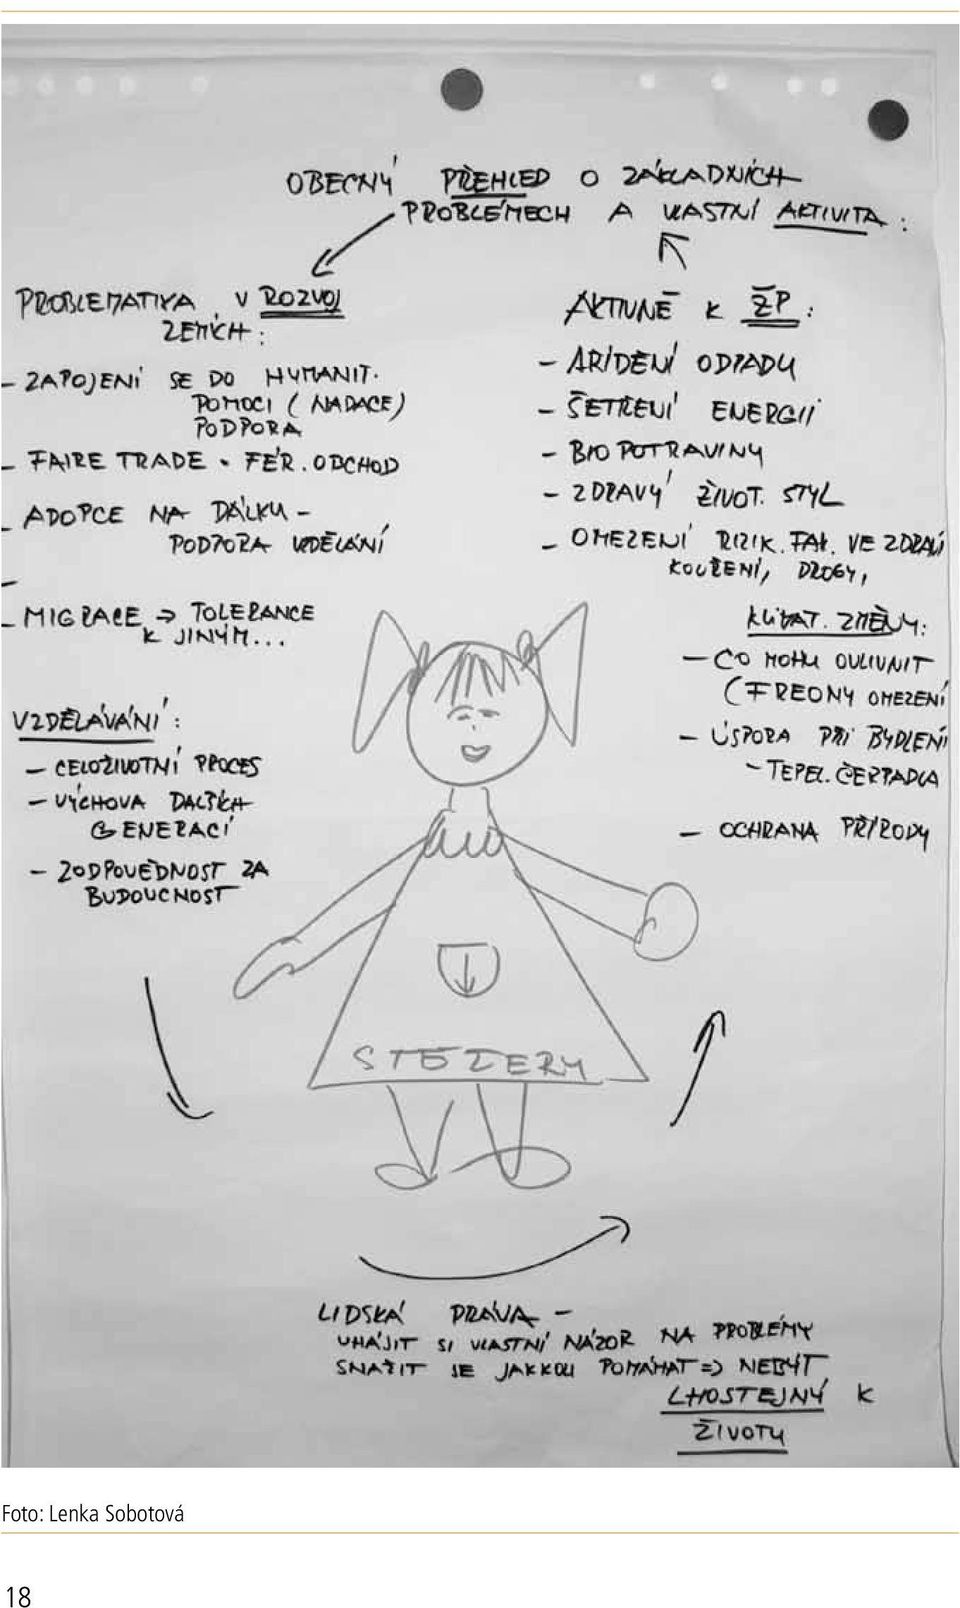 OBECNÝ PŘEHLED O ZÁKLADNÍCH
PROBLÉMECH A VLASTNÍ AKTIVITA :
PROBLEMATIKA V ROZVOJ
ZEMÍCH :
- ZAPOJENÍ SE DO HUMANIT.
POMOCI (NADACE)
PODPORA
- FAIRE TRADE • FÉR. OBCHOD
- ADOPCE NA DÁLKU -
PODPORA VDĚLÁNÍ
-
- MIGRACE => TOLERANCE
K JINÝM...
VZDĚLÁVÁNÍ :
- CELOŽIVOTNÍ PROCES
- VÝCHOVA DALŠÍCH
GENERACÍ
- ZODPOVĚDNOST ZA
BUDOUCNOST
AKTIVNĚ K ŽP :
- ODPADU
- ŠETŘENÍ ENERGIÍ
- BIO POTRAVINY
- ZDRAVÝ ŽIVOT. STYL
- OMEZENÍ RIZIK. FAK. VE ZDRAVÍ
KOUŘENÍ, DROGY,
KLIMAT. ZMĚNY:
- CO MOHU OVLIVNIT
(FREONY OMEZENÍ
- ÚSPORA PŘI BYDLENÍ
- TEPEL. ČERPADLA
- OCHRANA PŘÍRODY
STĚŽERY
LIDSKÁ PRÁVA -
UHÁJIT SI VLASTNÍ NÁZOR NA PROBLÉMY
SNAŽIT SE JAKKOLI POMÁHAT => NEBÝT
LHOSTEJNÝ K
ŽIVOTU
Foto: Lenka Sobotová
18